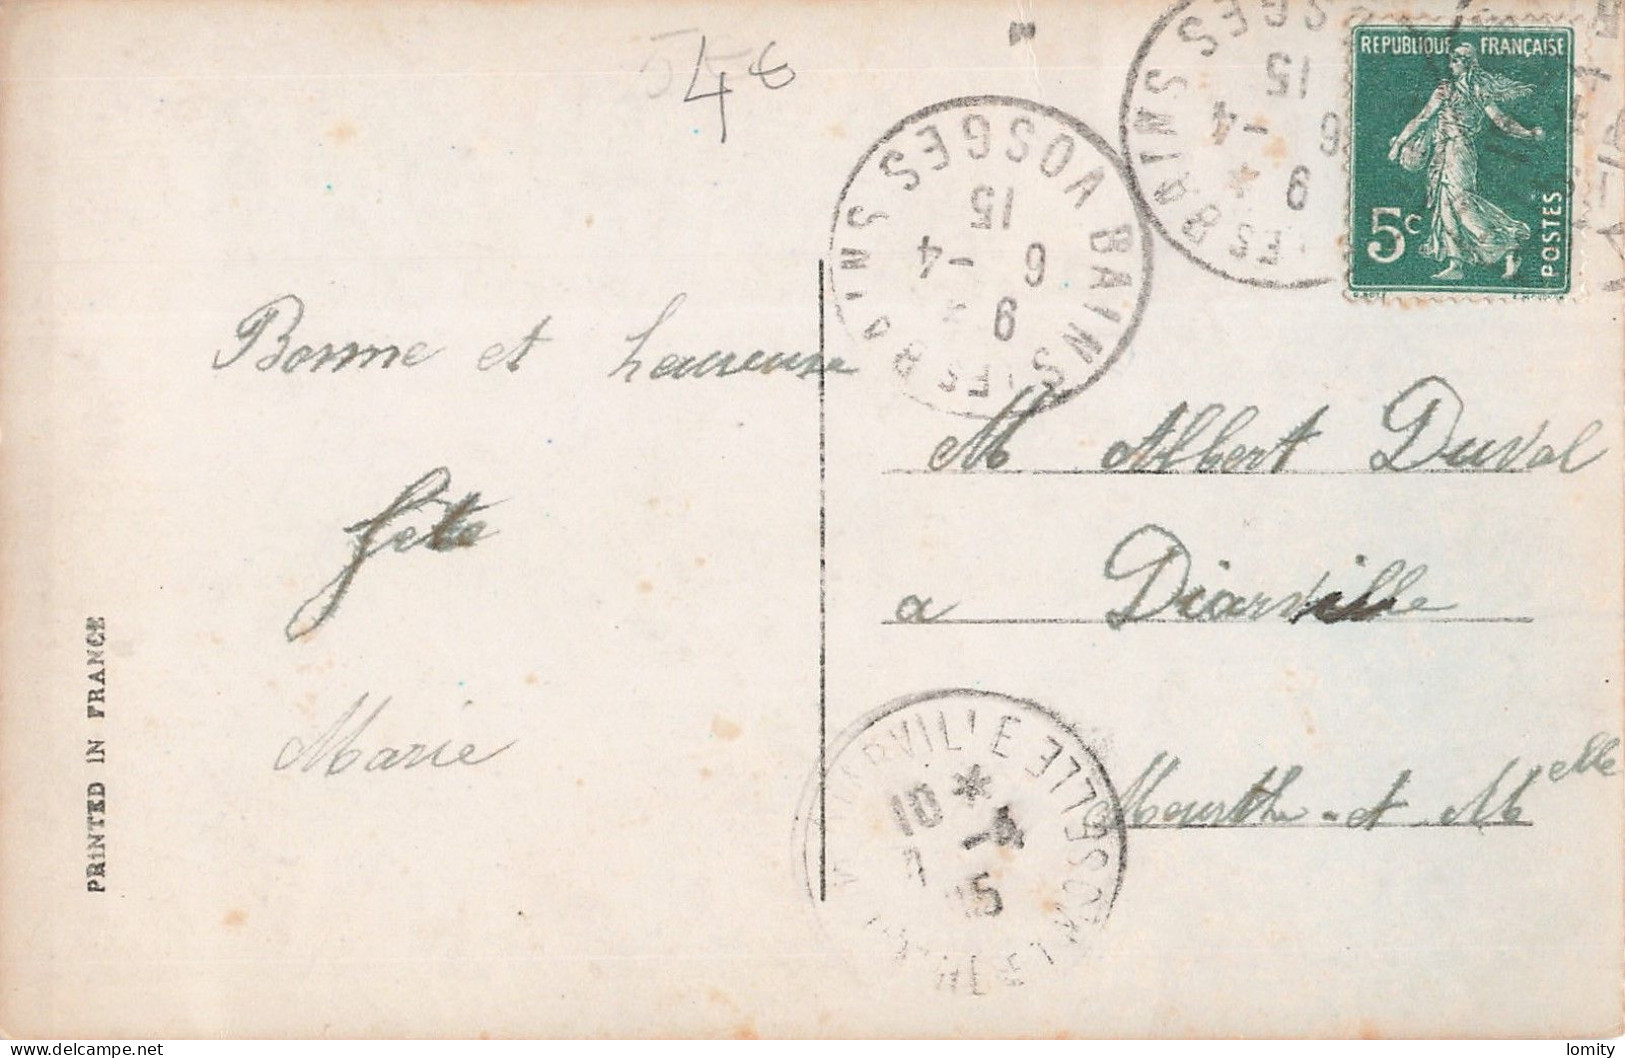 548
Bonne et heureuse
fête
Marie
PRINTED IN FRANCE
REPUBLIQUE FRANÇAISE
5c
POSTES
BAINS LES BAINS VOSGES
9
6 -4
15
BAINS
VOSGES
9
6 -4
15
M Albert Duval
a Diarville
Meurthe-et Melle
DIARVILLE
MEURTHE ET MOSELLE
10 *
-4
15
lomity